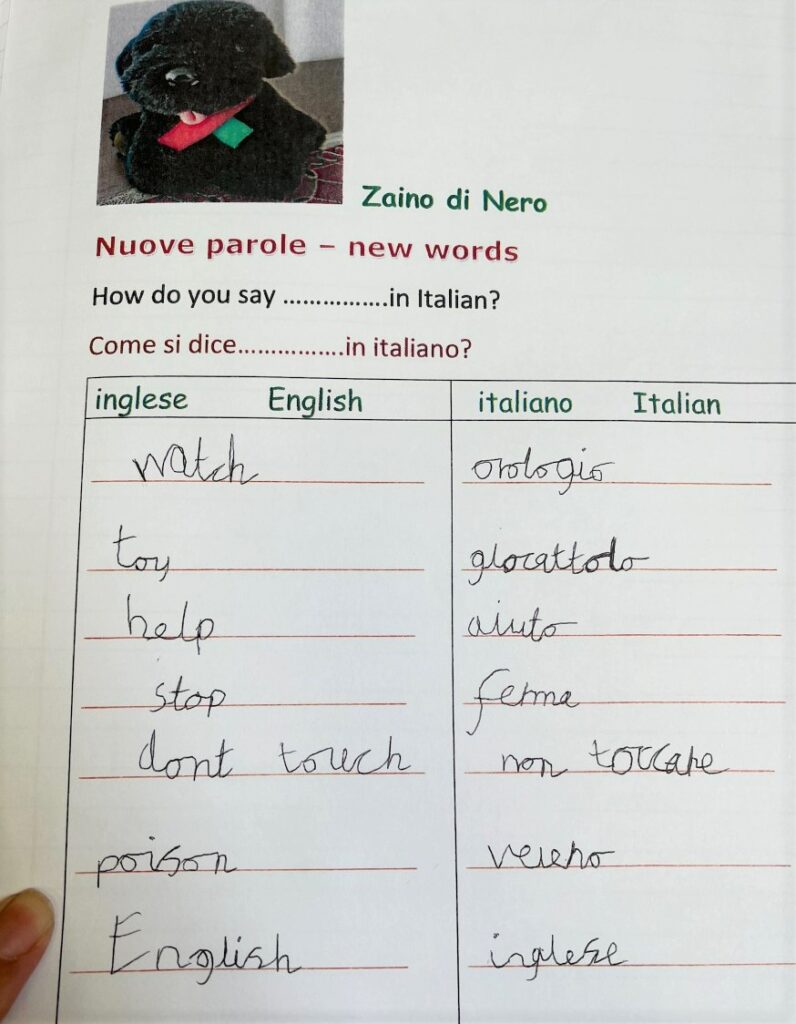 Zaino di Nero
Nuove parole – new words
How do you say ................in Italian?
Come si dice................in italiano?
inglese English italiano Italian
watch orologio
toy giocattolo
help aiuto
stop ferma
dont touch non toccare
poison veleno
English inglese